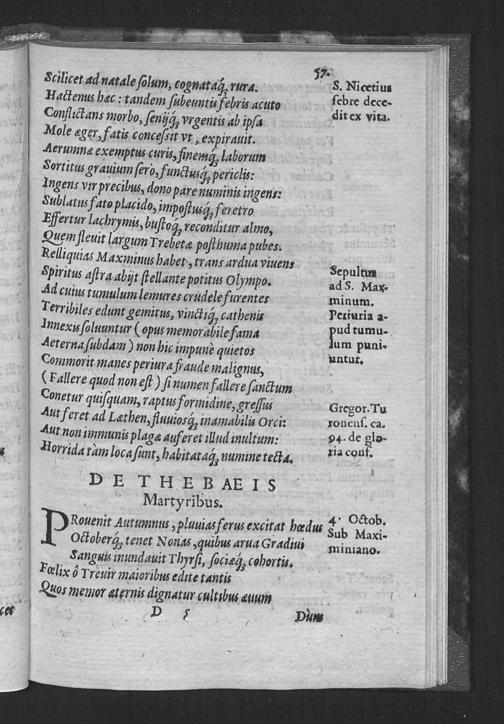 57.
Scilicet ad natale solum, cognataq́; rura.
Hactenus hæc: tandem subeuntis febris acuto
Conflictans morbo, senijq́; vrgentis ab ipsa
Mole æger, fatis concessit vt, expirauit.
Aerumnæ exemptus curis, finemq́; laborum
Sortitus grauium sero, functusq́; periclis:
Ingens vir precibus, dono pare numinis ingens:
Sublatus fato placido, impostusq́; feretro
Effertur lachrymis, bustoq́; reconditur almo,
Quem fleuit largum Trebetæ posthuma pubes.
Relliquias Maxminus habet, trans ardua viuens
Spiritus astra abijt stellante potitus Olympo.
Ad cuius tumulum lemures crudele furentes
Terribiles edunt gemitus, vinctiq́; cathenis
Innexu soluuntur (opus memorabile fama
Aeterna subdam) non hic impunè quietos
Commorit manes periura fraude malignus,
(Fallere quod non est) si numen fallere sanctum
Conetur quisquam, raptus formidine, gressus
Aut feret ad Læthen, fluuiosq́; inamabilis Orci:
Aut non immunis plagæ auferet illud inultum:
Horrida tam loca sunt, habitataq́; numine tecta.
S. Nicetius
febre dece-
dit ex vita.
Sepultus
ad S. Max-
minum.
Periuria a-
pud tumu-
lum puni-
untur.
Gregor. Tu
ronens. ca.
94. de glo-
ria conf.
DE THEBAEIS
Martyribus.
PRouenit Autumnus, pluuias ferus excitat hœdus
Octoberq́; tenet Nonas, quibus arua Gradiui
Sanguis inundauit Thyrsi, sociæq́; cohortis.
Fœlix ô Treuir maioribus edite tantis
Quos memor æternis dignatur cultibus æuum
4. Octob.
Sub Maxi-
miniano.
D 5
Dùm